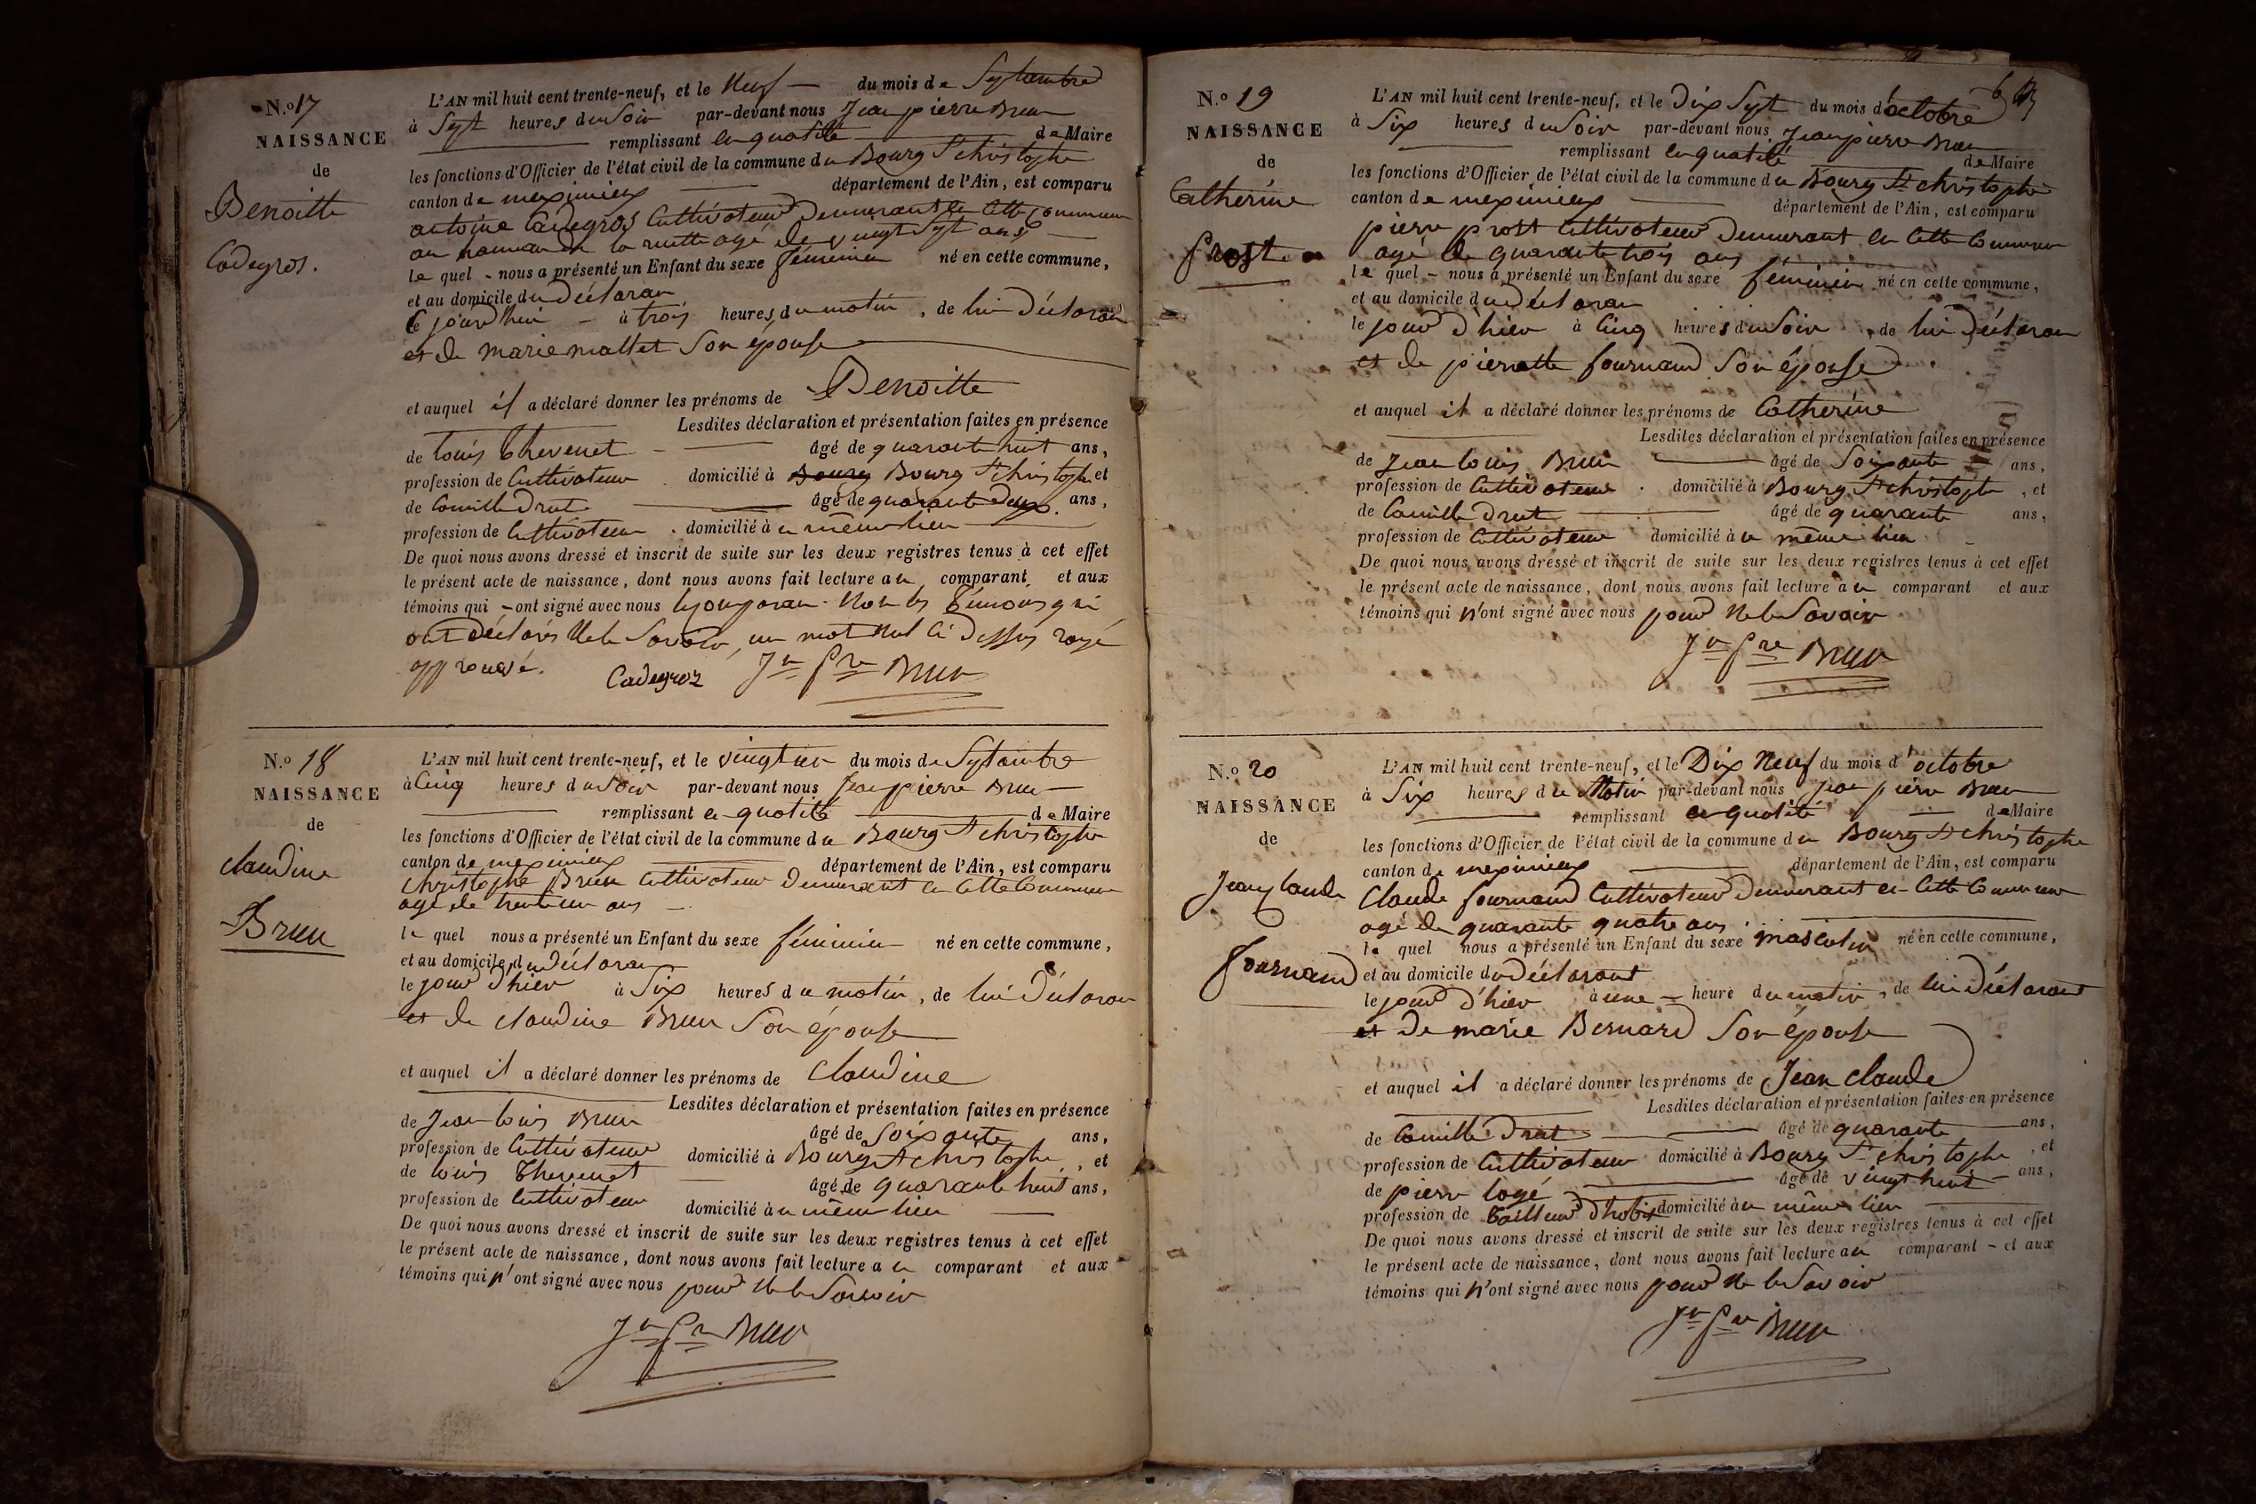 N.º 17
NAISSANCE
de
Benoitte
Cadegros.
L'AN mil huit cent trente-neuf, et le Neuf du mois de Septembre
à Sept heures du Soir par-devant nous Jean pierre Brun
remplissant en qualité de Maire
les fonctions d'Officier de l'état civil de la commune du Bourg St christophe
canton de meximieux département de l'Ain, est comparu
antoine Cadegros Cultivateur Demeurant en Cette Commune
au hameau de la ruette agé de vingt Sept ans
le quel nous a présenté un Enfant du sexe féminin né en cette commune,
et au domicile du Déclaran
le jourd'hui à trois heures du matin, de lui Déclaran
et de marie mallet Son épouse
et auquel il a déclaré donner les prénoms de Benoitte
Lesdites déclaration et présentation faites en présence
de louis Thevenet âgé de quarante huit ans,
profession de Cultivateur domicilié à Bourg Bourg St christophe et
de Camille Drut âgé de quarante deux ans,
profession de Cultivateur domicilié à u même lieu
De quoi nous avons dressé et inscrit de suite sur les deux registres tenus à cet effet
le présent acte de naissance, dont nous avons fait lecture au comparant et aux
témoins qui ont signé avec nous Non les témoins qui
ont déclarés Ne le Savoir, un mot Nul Ci Dessus rayé
approuvé. Cadegroz Jn Pre Brun
N.º 18
NAISSANCE
de
claudine
Brun
L'AN mil huit cent trente-neuf, et le vingt un du mois de Septembre
à Cinq heures du Soir par-devant nous Jean pierre Brun
remplissant en qualité de Maire
les fonctions d'Officier de l'état civil de la commune du Bourg St christophe
canton de meximieux département de l'Ain, est comparu
christophe Brun Cultivateur Demeurant en Cette Commune
agé de trente un ans
le quel nous a présenté un Enfant du sexe féminin né en cette commune,
et au domicile du Déclaran
le jour d'hier à Six heures du matin, de lui Déclaran
et de claudine Brun Son épouse
et auquel il a déclaré donner les prénoms de Claudine
Lesdites déclaration et présentation faites en présence
de Jean louis Brun âgé de Soixante ans,
profession de Cultivateur domicilié à Bourg St christophe, et
de louis Thevenet âgé de quarante huit ans,
profession de Cultivateur domicilié à u même lieu
De quoi nous avons dressé et inscrit de suite sur les deux registres tenus à cet effet
le présent acte de naissance, dont nous avons fait lecture au comparant et aux
témoins qui n'ont signé avec nous pour Ne le Savoir
Jn Pre Brun
N.º 19
NAISSANCE
de
Catherine
prost
L'AN mil huit cent trente-neuf, et le Dix Sept du mois d'octobre
à Six heures du Soir par-devant nous Jean pierre Brun
remplissant en qualité de Maire
les fonctions d'Officier de l'état civil de la commune du Bourg St christophe
canton de meximieux département de l'Ain, est comparu
pierre prost Cultivateur Demeurant en Cette Commune
agé de quarante trois ans
le quel nous a présenté un Enfant du sexe féminin né en cette commune,
et au domicile du déclaran
le jour d'hier à Cinq heures du Soir, de lui Déclaran
et de pierrette fournand Son épouse
et auquel il a déclaré donner les prénoms de Catherine
Lesdites déclaration et présentation faites en présence
de Jean louis Brun âgé de Soixante ans,
profession de Cultivateur domicilié à Bourg St christophe, et
de Camille Drut âgé de quarante ans,
profession de Cultivateur domicilié à u même lieu
De quoi nous avons dressé et inscrit de suite sur les deux registres tenus à cet effet
le présent acte de naissance, dont nous avons fait lecture au comparant et aux
témoins qui n'ont signé avec nous pour Ne le Savoir
Jn Pre Brun
N.º 20
NAISSANCE
de
Jean claude
fournand
L'AN mil huit cent trente-neuf, et le Dix Neuf du mois d'octobre
à Six heures du Matin par-devant nous Jean pierre Brun
remplissant en qualité de Maire
les fonctions d'Officier de l'état civil de la commune du Bourg St christophe
canton de meximieux département de l'Ain, est comparu
Claude fournand Cultivateur Demeurant en Cette Commune
agé de quarante quatre ans
le quel nous a présenté un Enfant du sexe masculin né en cette commune,
et au domicile du Déclarant
le jour d'hier à une heure du matin, de lui Déclarant
et De marie Bernard Son épouse
et auquel il a déclaré donner les prénoms de Jean claude
Lesdites déclaration et présentation faites en présence
de Camille Drut âgé de quarante ans,
profession de Cultivateur domicilié à Bourg St christophe, et
de pierre logé âgé de vingt huit ans,
profession de tailleur d'habit domicilié à u même lieu
De quoi nous avons dressé et inscrit de suite sur les deux registres tenus à cet effet
le présent acte de naissance, dont nous avons fait lecture au comparant et aux
témoins qui n'ont signé avec nous pour Ne le Savoir
Jn Pre Brun